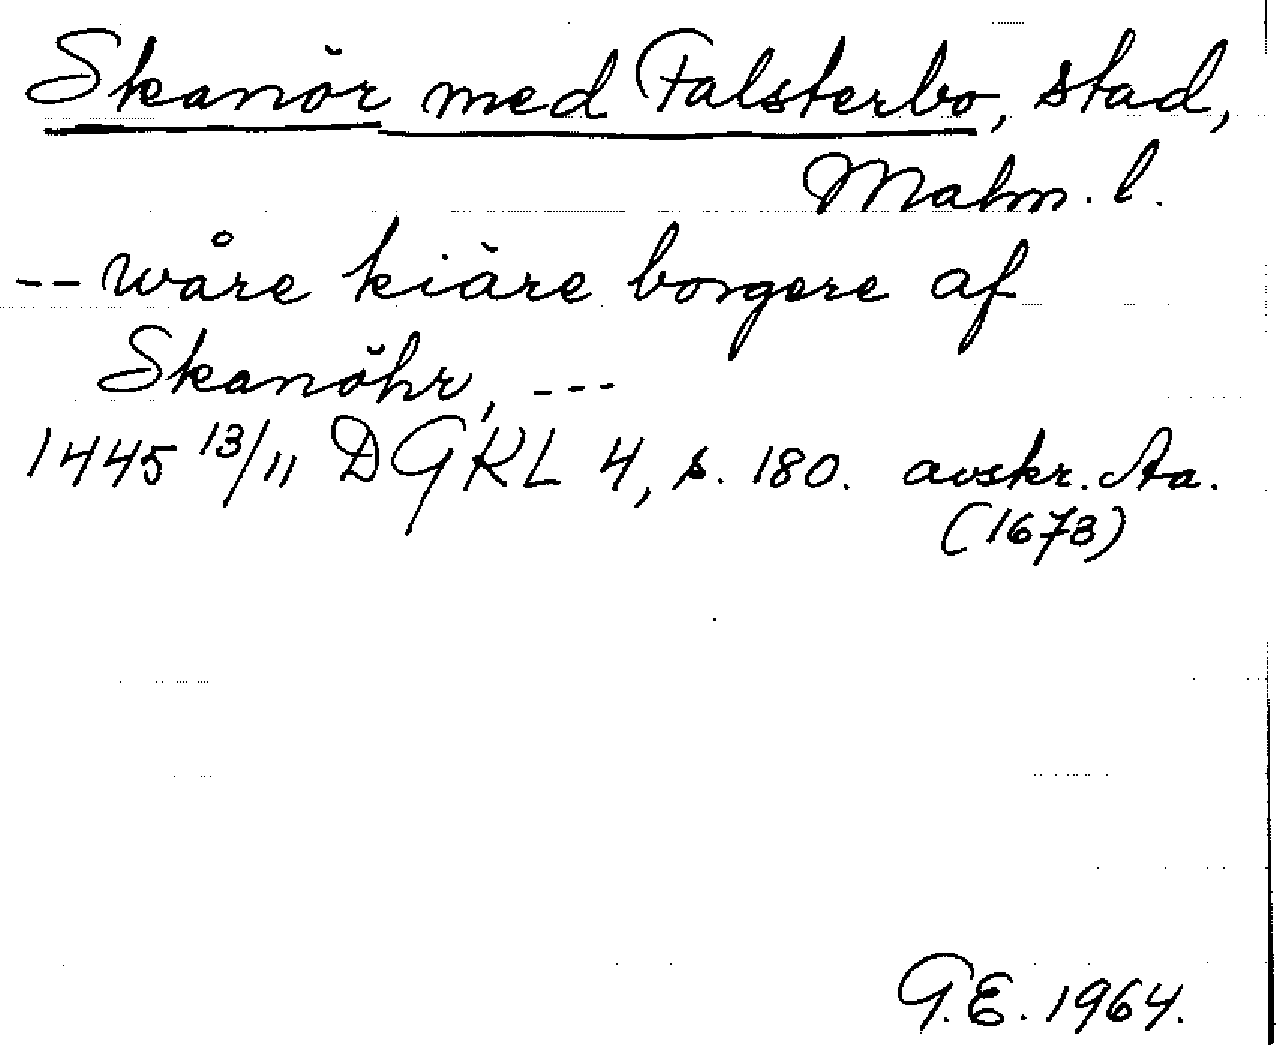 Skanör med Falsterbo, stad,
Malm. l.
-- wåre kiäre borgere af
Skanöhr, ---
1445 13/11 DGKL 4, s. 180. avskr. Aa.
(1673)
G.E. 1964.